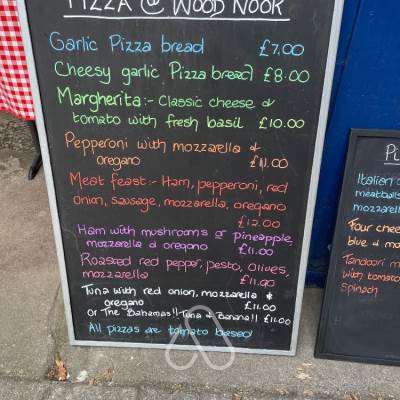 PIZZA @ WOOD NOOK
Garlic Pizza bread £7.00
Cheesy garlic Pizza bread £8.00
Margherita:- Classic cheese &
tomato with fresh basil £10.00
Pepperoni with mozzarella &
oregano £11.00
Meat feast:- Ham, pepperoni, red
onion, sausage, mozzarella, oregano
£12.00
Ham with mushrooms or pineapple,
mozzarella & oregano £11.00
Roasted red pepper, pesto, olives,
mozzarella £11.00
Tuna with red onion, mozzarella &
oregano £11.00
or The Bahamas!! Tuna & Banana!! £11.00
All pizzas are tomato based
Italian
meatballs
mozzarell
Four chee
blue & mo
Tandoori m
with tomato
spinach